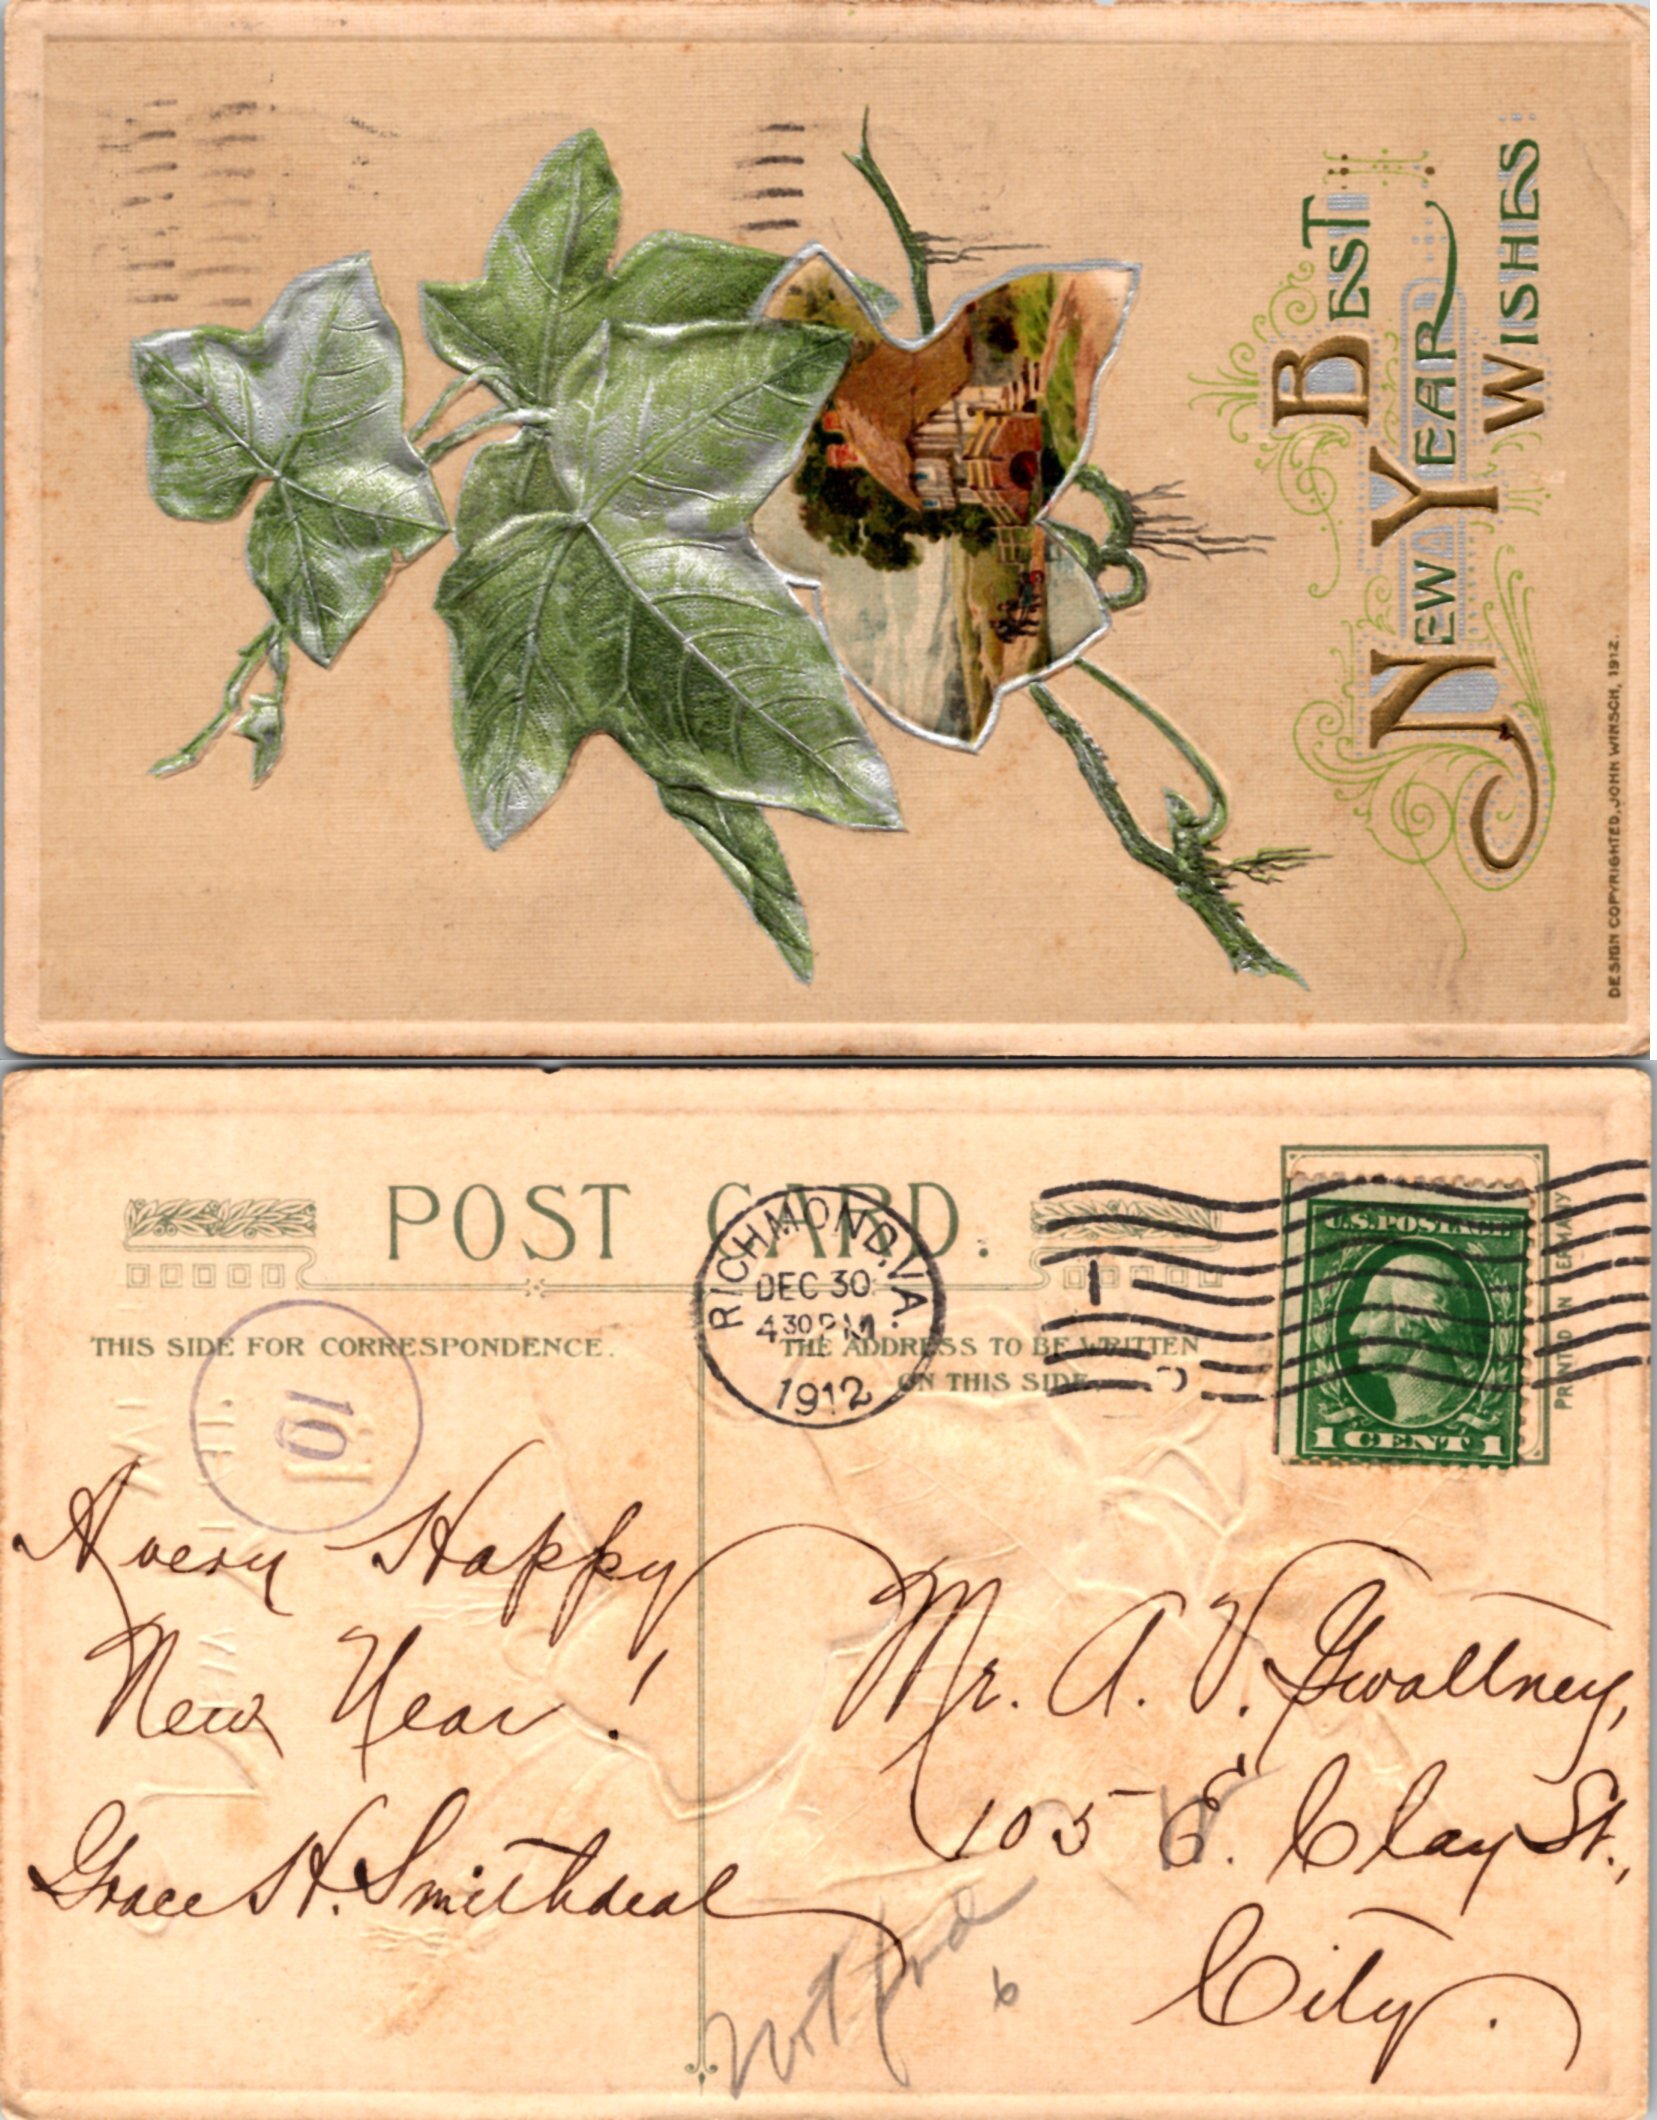 BEST
NEW YEAR
WISHES
DESIGN COPYRIGHTED, JOHN WINSCH, 1912.
POST CARD.
THIS SIDE FOR CORRESPONDENCE.
THE ADDRESS TO BE WRITTEN
ON THIS SIDE.
RICHMOND, VA.
DEC 30
4 30 PM
1912
1
U.S. POSTAGE
1 CENT 1
PRINTED IN GERMANY
10
A very Happy
New Year!
Grace H. Smithdeal
Mr. A. V. Gwaltney,
105 E. Clay St.,
City.
Not fnd
6